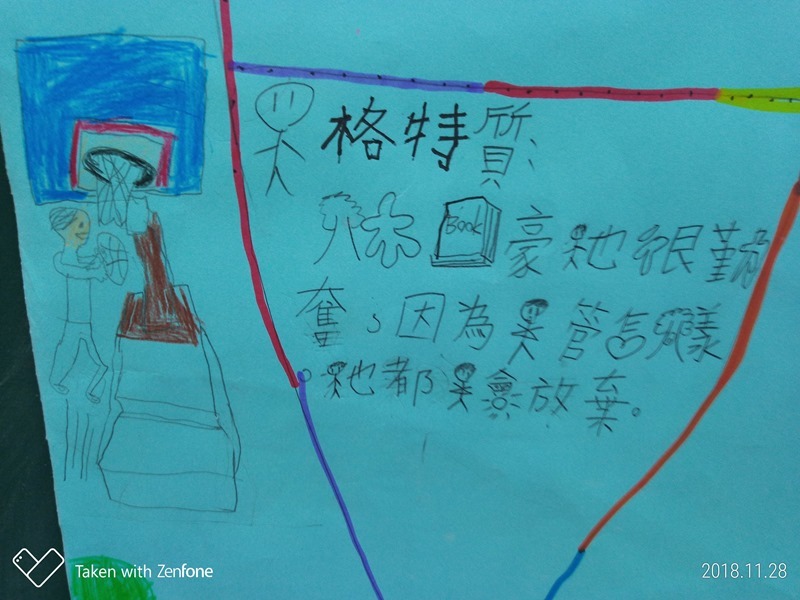 人格特質:
林Book豪他很勤
奮,因為不管怎樣
他都不會放棄。
Taken with Zenfone
2018.11.28